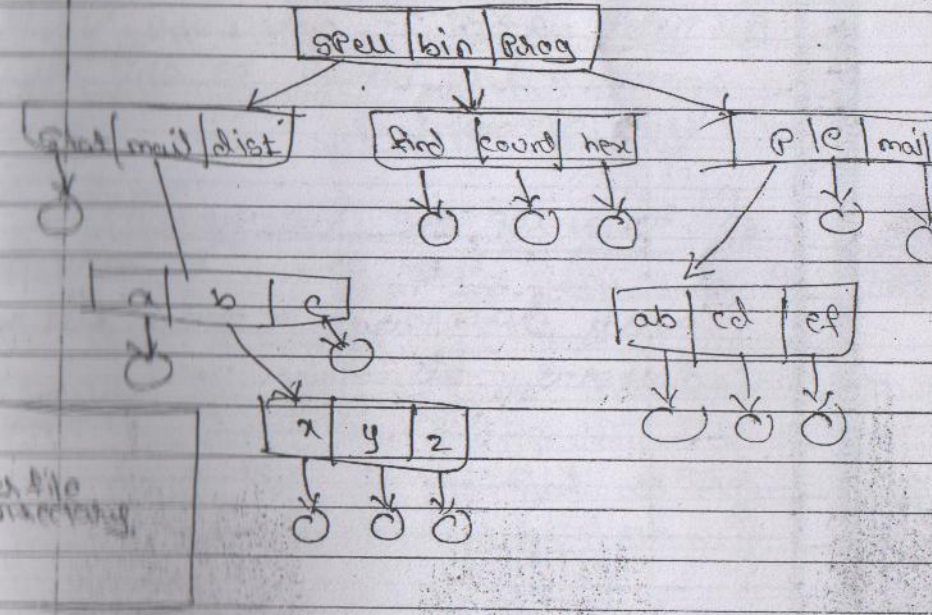 spell bin prog
mail dist find count hex P C mail
a b c ab cd ef
x y z